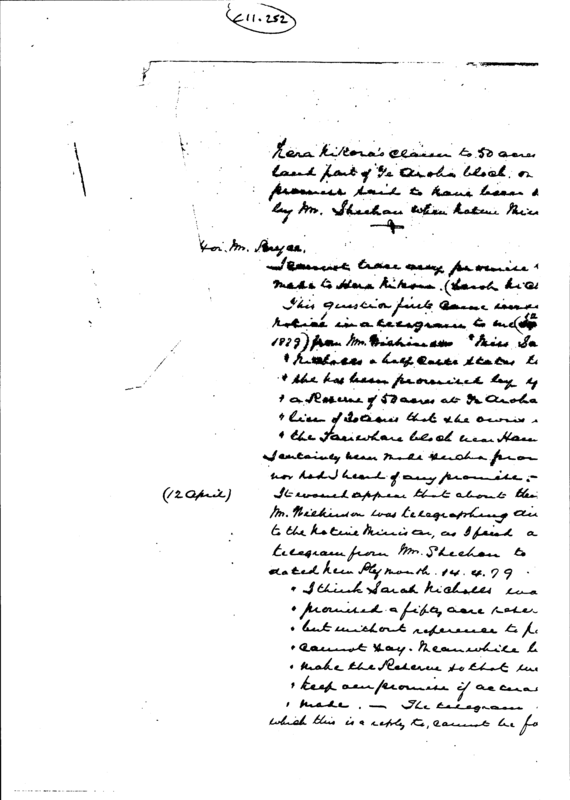 E11.252
Hera Nikora's claim to 50 acres
land part of Te Aroha block. on
promise said to have been
by Mr. Sheehan when Native Mini
Hon. Mr. Bryce.
I cannot trace any promise
made to Hera Nikora. (Sarah Nich
This question first came
notice in a telegram to me
1879) from Mr. Wilkinson "Miss Sa
" Nicholls a half caste states
" she has been promised by
" a Reserve of 50 acres at Te Aroha
" lieu of that she owns
" the block near
I certainly never made such a prom
nor had I heard of any promise. -
(12 April) It would appear that about the
Mr. Wilkinson was telegraphing di
to the Native Minister, as I find a
telegram from Mr. Sheehan to
dated New Plymouth. 14.4.79
" I think Sarah Nicholls was
" promised a fifty acre reser
" but without reference to p
" cannot say. Meanwhile
" make the Reserve so that we
" keep our promise if
" made. — The telegram
which this is a reply to, cannot be fo